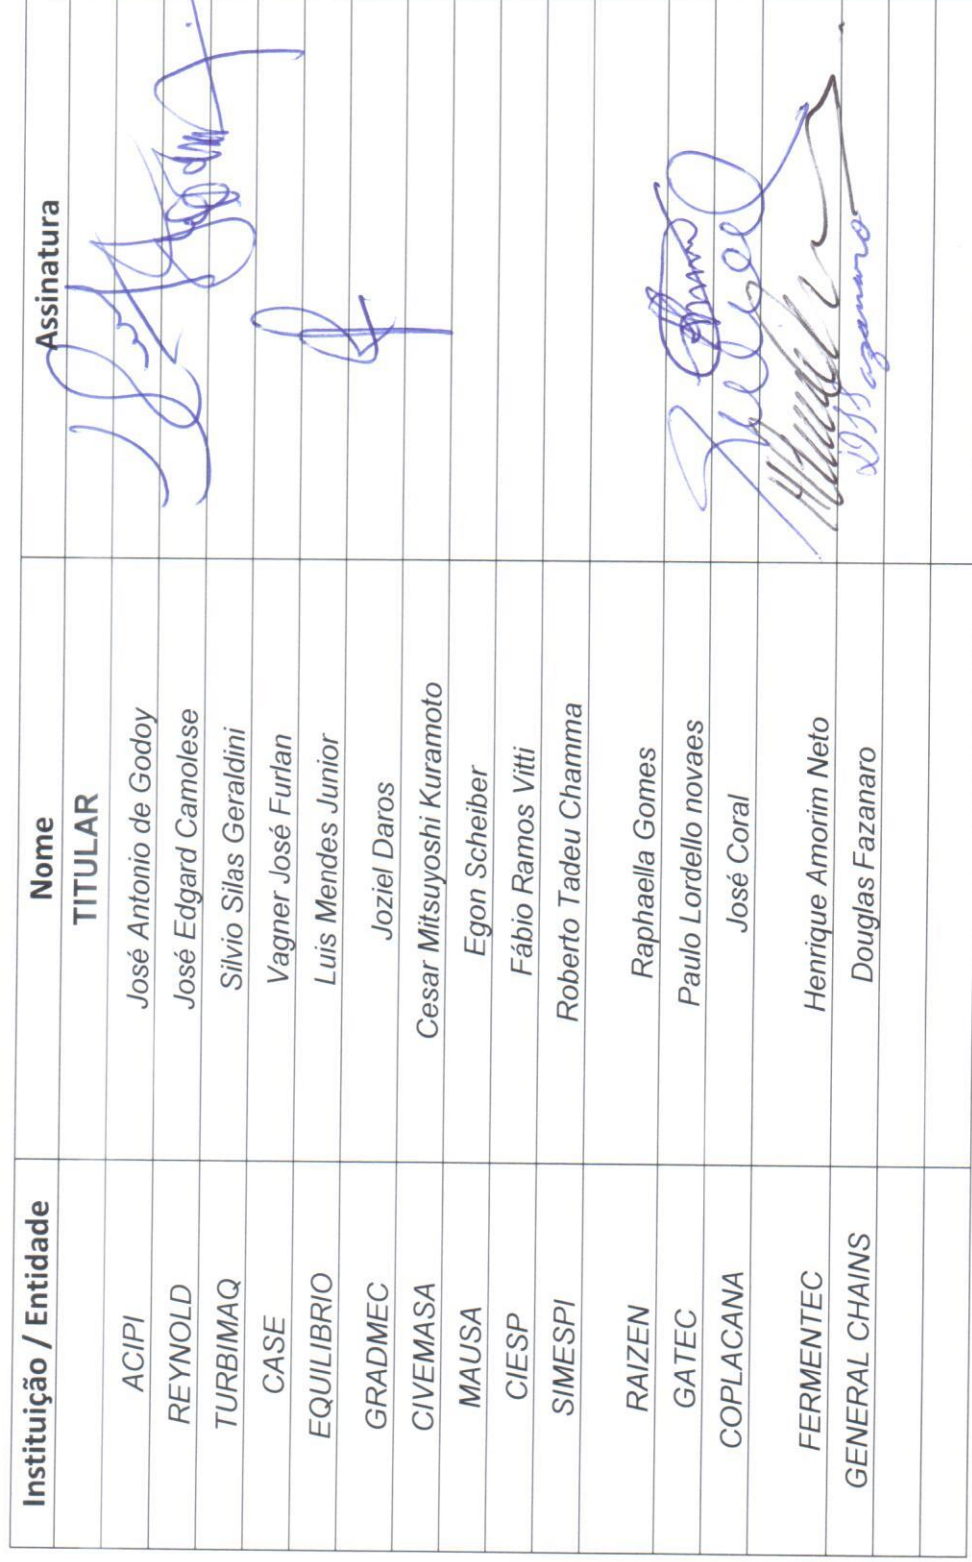 Instituição / Entidade Nome Assinatura
TITULAR
ACIPI José Antonio de Godoy
REYNOLD José Edgard Camolese
TURBIMAQ Silvio Silas Geraldini
CASE Vagner José Furlan
EQUILIBRIO Luis Mendes Junior
GRADMEC Joziel Daros
CIVEMASA Cesar Mitsuyoshi Kuramoto
MAUSA Egon Scheiber
CIESP Fábio Ramos Vitti
SIMESPI Roberto Tadeu Chamma
RAIZEN Raphaella Gomes
GATEC Paulo Lordello novaes
COPLACANA José Coral
FERMENTEC Henrique Amorim Neto
GENERAL CHAINS Douglas Fazanaro